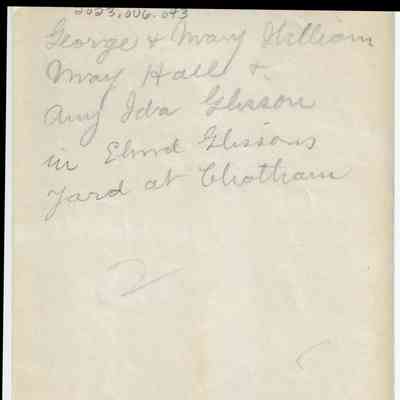 2023.006.043
George & Mary Gilliam
May Hall &
Amy Ida Glisson
in Elmd Glissons
Yard at Chatham
2